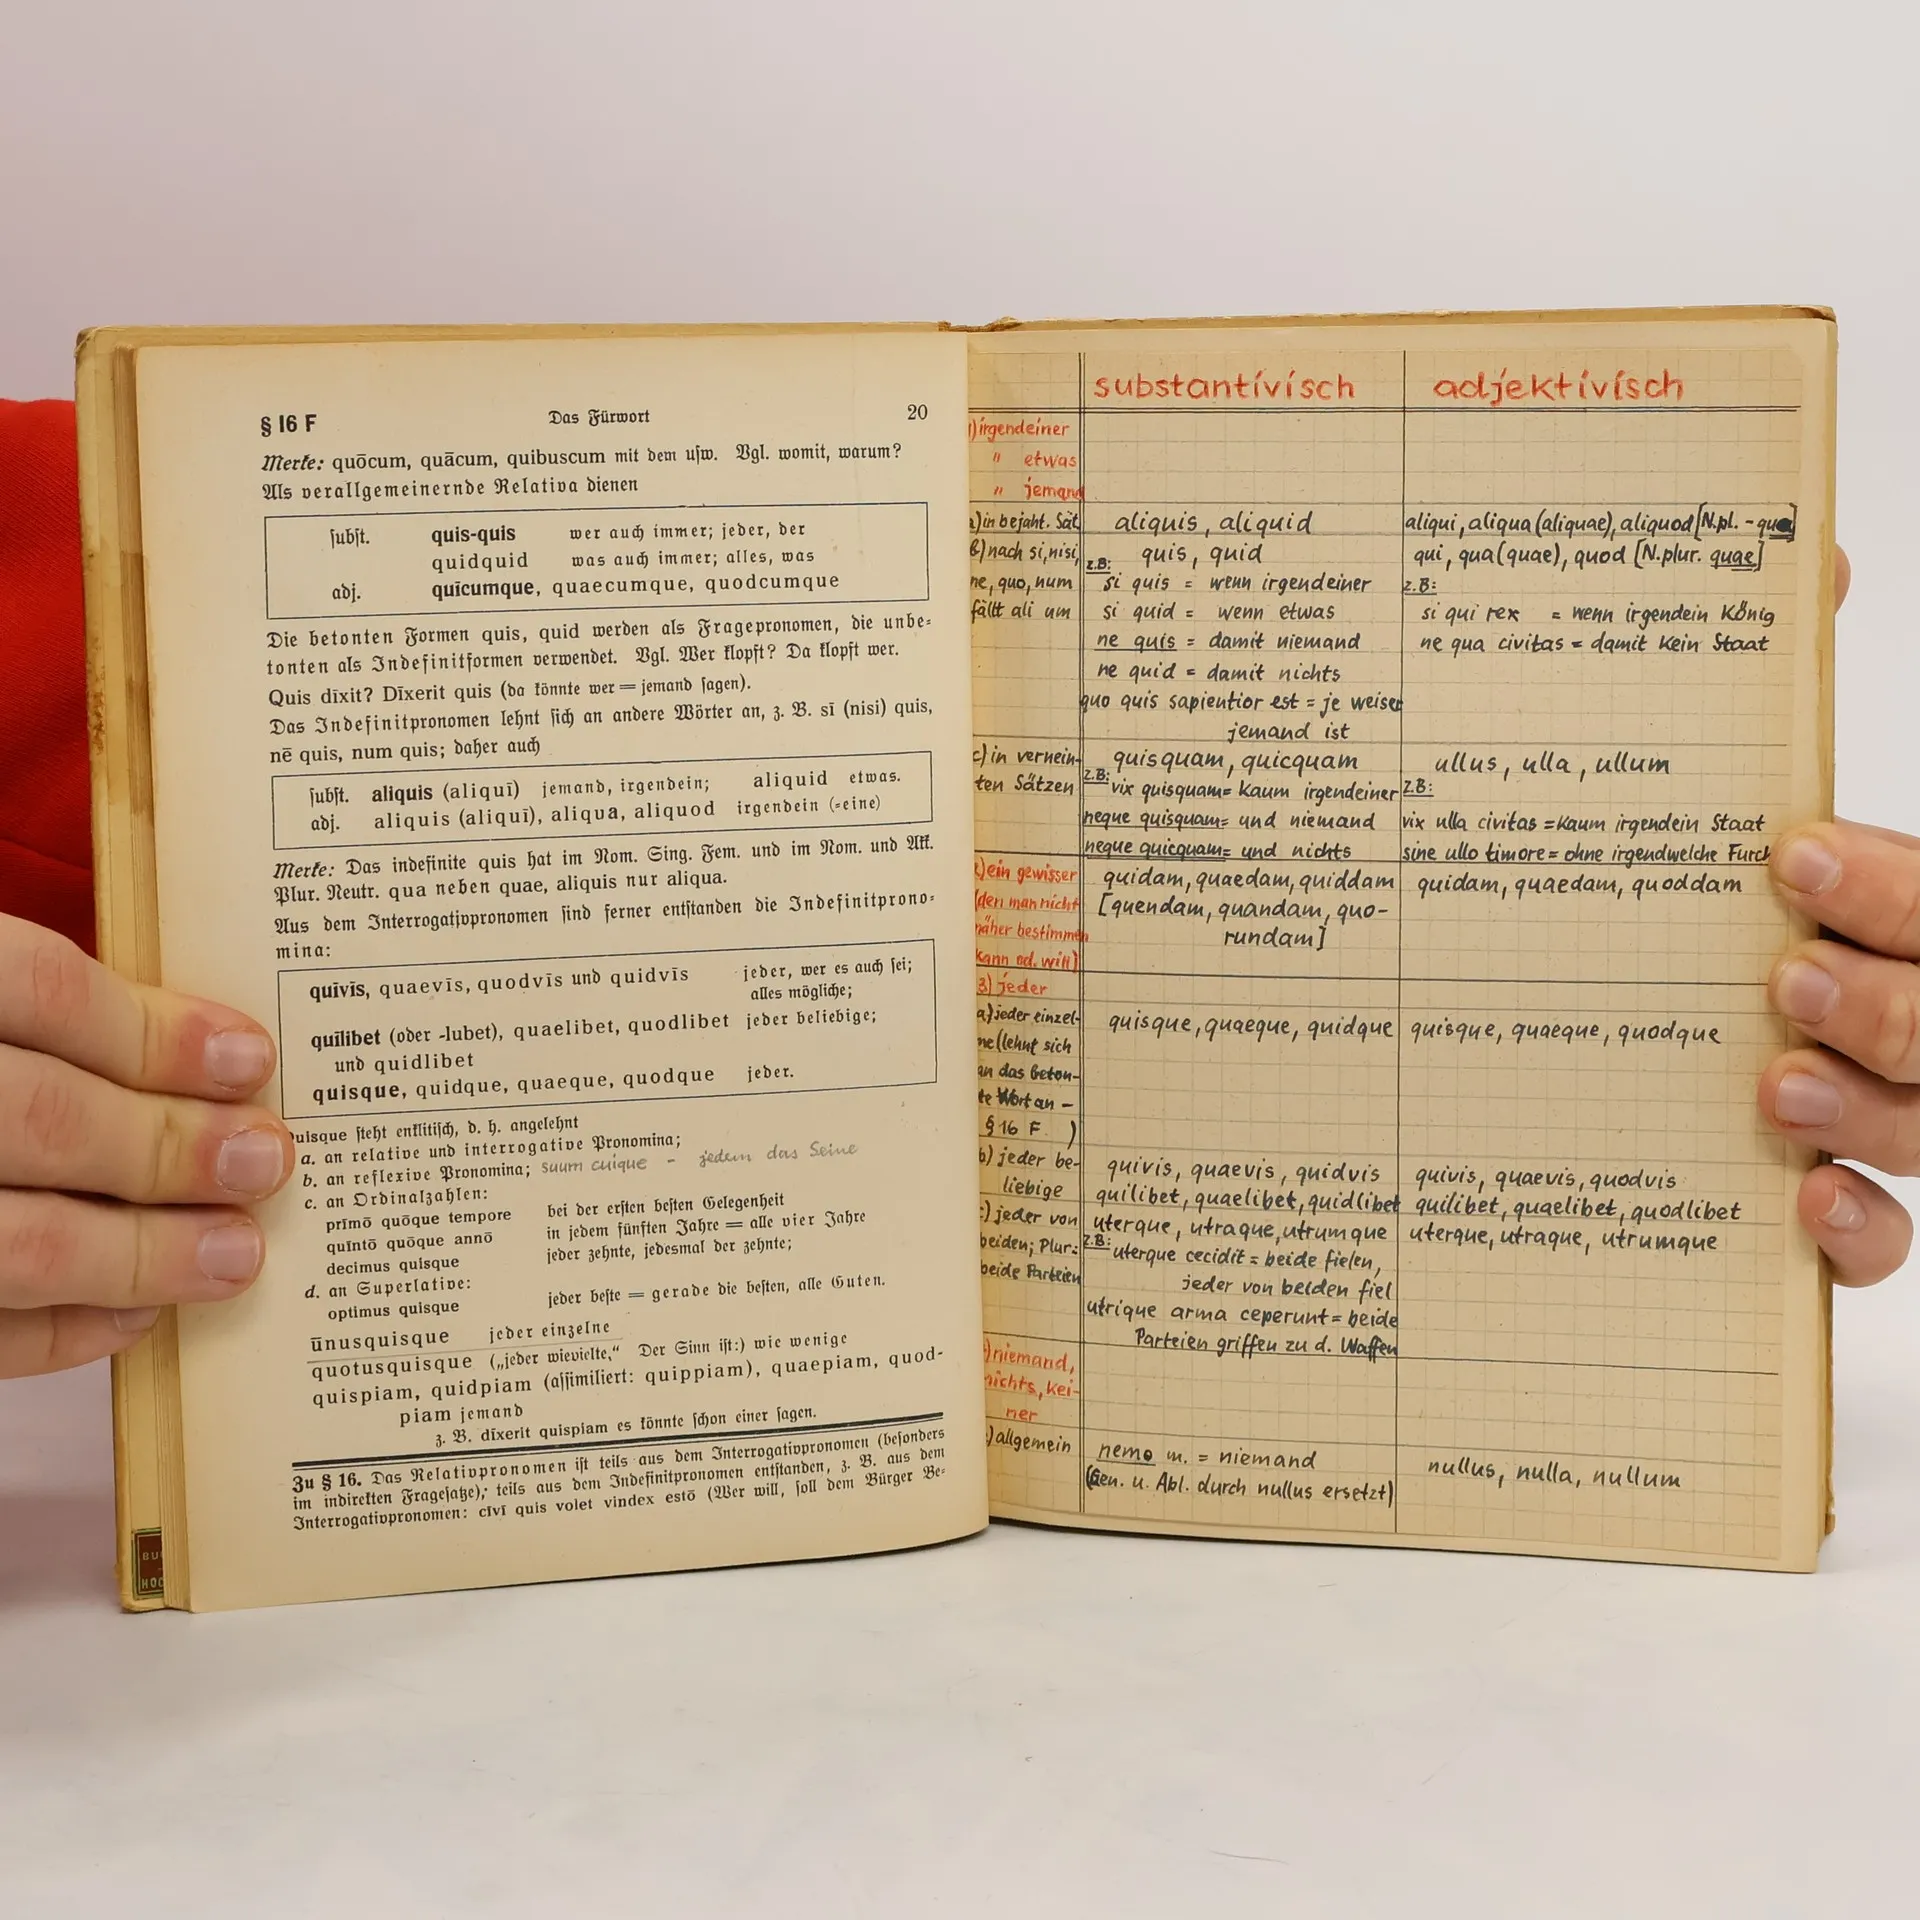 § 16 F Das Fürwort 20
Merke: quōcum, quācum, quibuscum mit dem usw. Vgl. womit, warum?
Als verallgemeinernde Relativa dienen
subst. quis-quis wer auch immer; jeder, der
quidquid was auch immer; alles, was
adj. quīcumque, quaecumque, quodcumque
Die betonten Formen quis, quid werden als Fragepronomen, die unbe-
tonten als Indefinitformen verwendet. Vgl. Wer klopft? Da klopft wer.
Quis dīxit? Dīxerit quis (da könnte wer = jemand sagen).
Das Indefinitpronomen lehnt sich an andere Wörter an, z. B. sī (nisi) quis,
nē quis, num quis; daher auch
subst. aliquis (aliquī) jemand, irgendein; aliquid etwas.
adj. aliquis (aliquī), aliqua, aliquod irgendein (-eine)
Merke: Das indefinite quis hat im Nom. Sing. Fem. und im Nom. und Akk.
Plur. Neutr. qua neben quae, aliquis nur aliqua.
Aus dem Interrogativpronomen sind ferner entstanden die Indefinitprono-
mina:
quīvīs, quaevīs, quodvīs und quidvīs jeder, wer es auch sei;
alles mögliche;
quīlibet (oder -lubet), quaelibet, quodlibet jeder beliebige;
und quidlibet
quisque, quidque, quaeque, quodque jeder.
uisque steht enklitisch, d. h. angelehnt
a. an relative und interrogative Pronomina;
b. an reflexive Pronomina; suum cuique - jedem das Seine
c. an Ordinalzahlen:
prīmō quōque tempore bei der ersten besten Gelegenheit
quīntō quōque annō in jedem fünften Jahre = alle vier Jahre
decimus quisque jeder zehnte, jedesmal der zehnte;
d. an Superlative:
optimus quisque jeder beste = gerade die besten, alle Guten.
ūnusquisque jeder einzelne
quotusquisque („jeder wievielte,“ Der Sinn ist:) wie wenige
quispiam, quidpiam (assimiliert: quippiam), quaepiam, quod-
piam jemand
z. B. dīxerit quispiam es könnte schon einer sagen.
Zu § 16. Das Relativpronomen ist teils aus dem Interrogativpronomen (besonders
im indirekten Fragesatze); teils aus dem Indefinitpronomen entstanden, z. B. aus dem
Interrogativpronomen: cīvī quis volet vindex estō (Wer will, soll dem Bürger Be-
BU
HOC
substantivisch adjektivisch
1) irgendeiner
" etwas
" jemand
a) in bejaht. Sät. aliquis, aliquid aliqui, aliqua (aliquae), aliquod [N.pl. - qua]
b) nach si, nisi, quis, quid qui, qua (quae), quod [N.plur. quae]
ne, quo, num z.B: si quis = wenn irgendeiner z.B:
fällt ali um si quid = wenn etwas si qui rex = wenn irgendein König
ne quis = damit niemand ne qua civitas = damit kein Staat
ne quid = damit nichts
quo quis sapientior est = je weiser
jemand ist
c) in vernein- quisquam, quicquam ullus, ulla, ullum
ten Sätzen z.B: vix quisquam = kaum irgendeiner z.B:
neque quisquam = und niemand vix ulla civitas = kaum irgendein Staat
neque quicquam = und nichts sine ullo timore = ohne irgendwelche Furch
2) ein gewisser quidam, quaedam, quiddam quidam, quaedam, quoddam
(den man nicht [quendam, quandam, quo-
näher bestimmen rundam]
kann od. will)
3) jeder
a) jeder einzel- quisque, quaeque, quidque quisque, quaeque, quodque
ne (lehnt sich
an das beton-
te Wort an -
§ 16 F )
b) jeder be- quivis, quaevis, quidvis quivis, quaevis, quodvis
liebige quilibet, quaelibet, quidlibet quilibet, quaelibet, quodlibet
c) jeder von uterque, utraque, utrumque uterque, utraque, utrumque
beiden; Plur: z.B: uterque cecidit = beide fielen,
beide Parteien jeder von beiden fiel
utrique arma ceperunt = beide
Parteien griffen zu d. Waffen
) niemand,
nichts, kei-
ner
) allgemein nemo m. = niemand nullus, nulla, nullum
(Gen. u. Abl. durch nullus ersetzt)